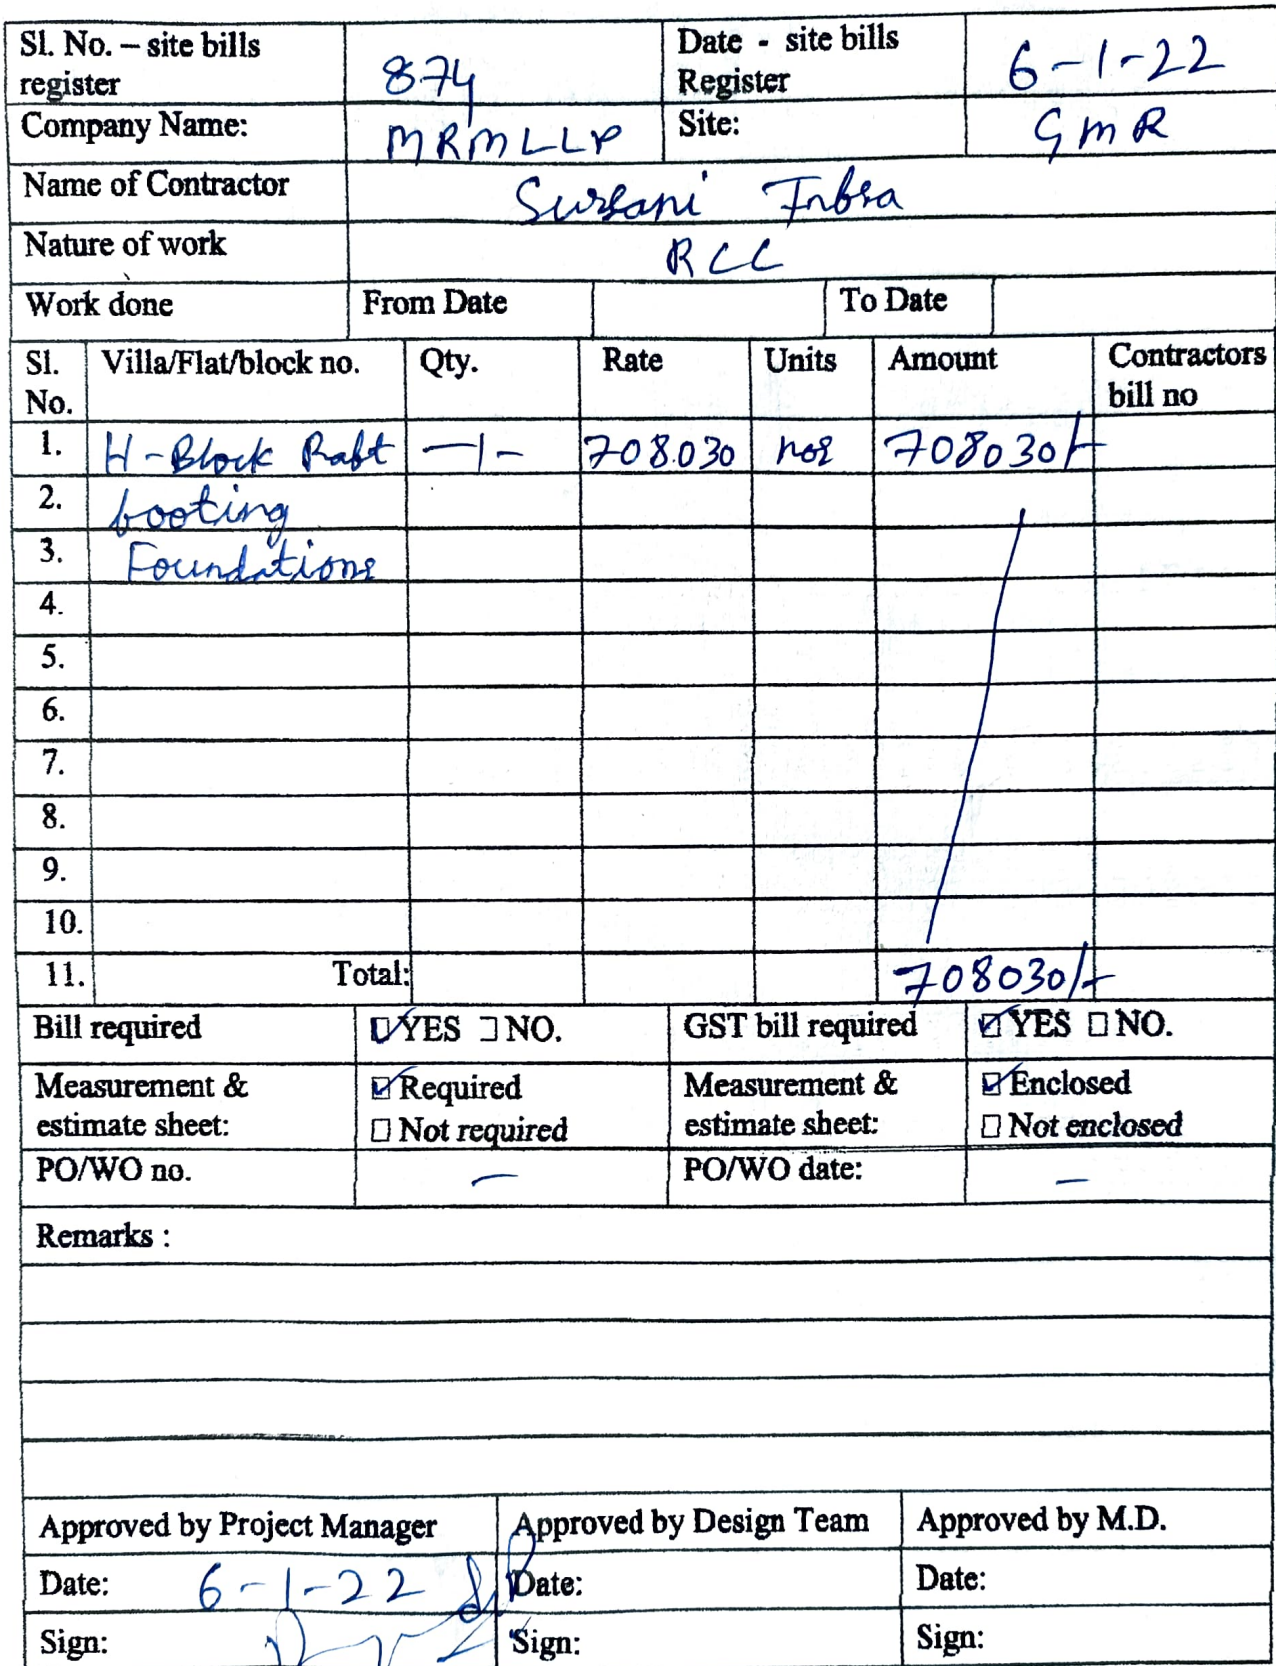 Sl. No. – site bills register 874 Date - site bills Register 6-1-22
Company Name: MRMLLP Site: GMR
Name of Contractor Sursani Infra
Nature of work RCC
Work done From Date To Date
Sl. No. Villa/Flat/block no. Qty. Rate Units Amount Contractors bill no
1. H-Block Raft —1— 708030 nos 708030/-
2. footing
3. Foundations
4.
5.
6.
7.
8.
9.
10.
11. Total: 708030/-
Bill required ☑YES ☐NO. GST bill required ☑YES ☐NO.
Measurement & ☑Required Measurement & ☑Enclosed
estimate sheet: ☐Not required estimate sheet: ☐Not enclosed
PO/WO no. — PO/WO date: —
Remarks :
Approved by Project Manager Approved by Design Team Approved by M.D.
Date: 6-1-22 Date: Date:
Sign: Sign: Sign: